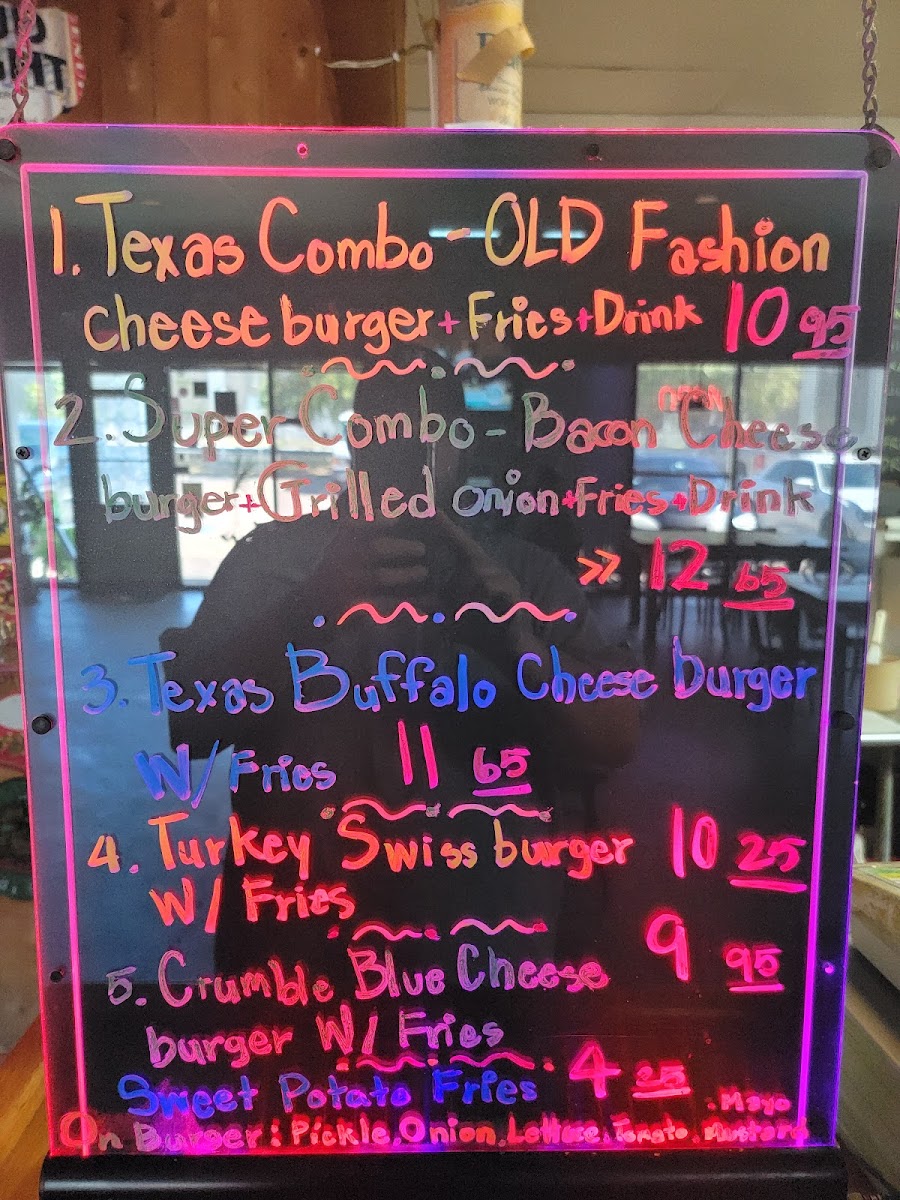 1. Texas Combo - OLD Fashion
Cheese burger + Fries + Drink 10 95
2. Super Combo - Bacon Cheese
burger + Grilled onion + Fries + Drink
>> 12 65
3. Texas Buffalo Cheese burger
W/ Fries 11 65
4. Turkey Swiss burger 10 25
W/ Fries
5. Crumble Blue Cheese 9 95
burger W/ Fries
Sweet Potato Fries 4
. Mayo
On Burger: Pickle, Onion, Lettuse, Tomato, Mustard